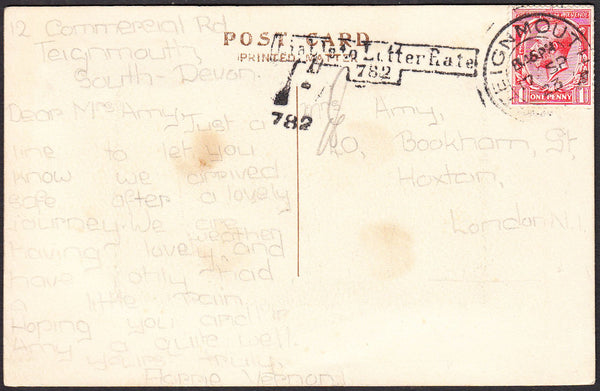 12 Commercial Rd
Teignmouth
South-Devon.
POST CARD
(PRINTED MATTER
Liable to Letter Rate
782
T
782
TEIGNMOUTH
ONE PENNY
Dear Mrs Amy,
Just a
line to let you
know we arrived
safe after a lovely
journey. We are
having lovely weather, and
have only had
a little rain.
Hoping you and
Amy quite well.
yours truly
Vernond
Mrs Amy,
20, Bookham, St,
Hoxton,
London N.1.